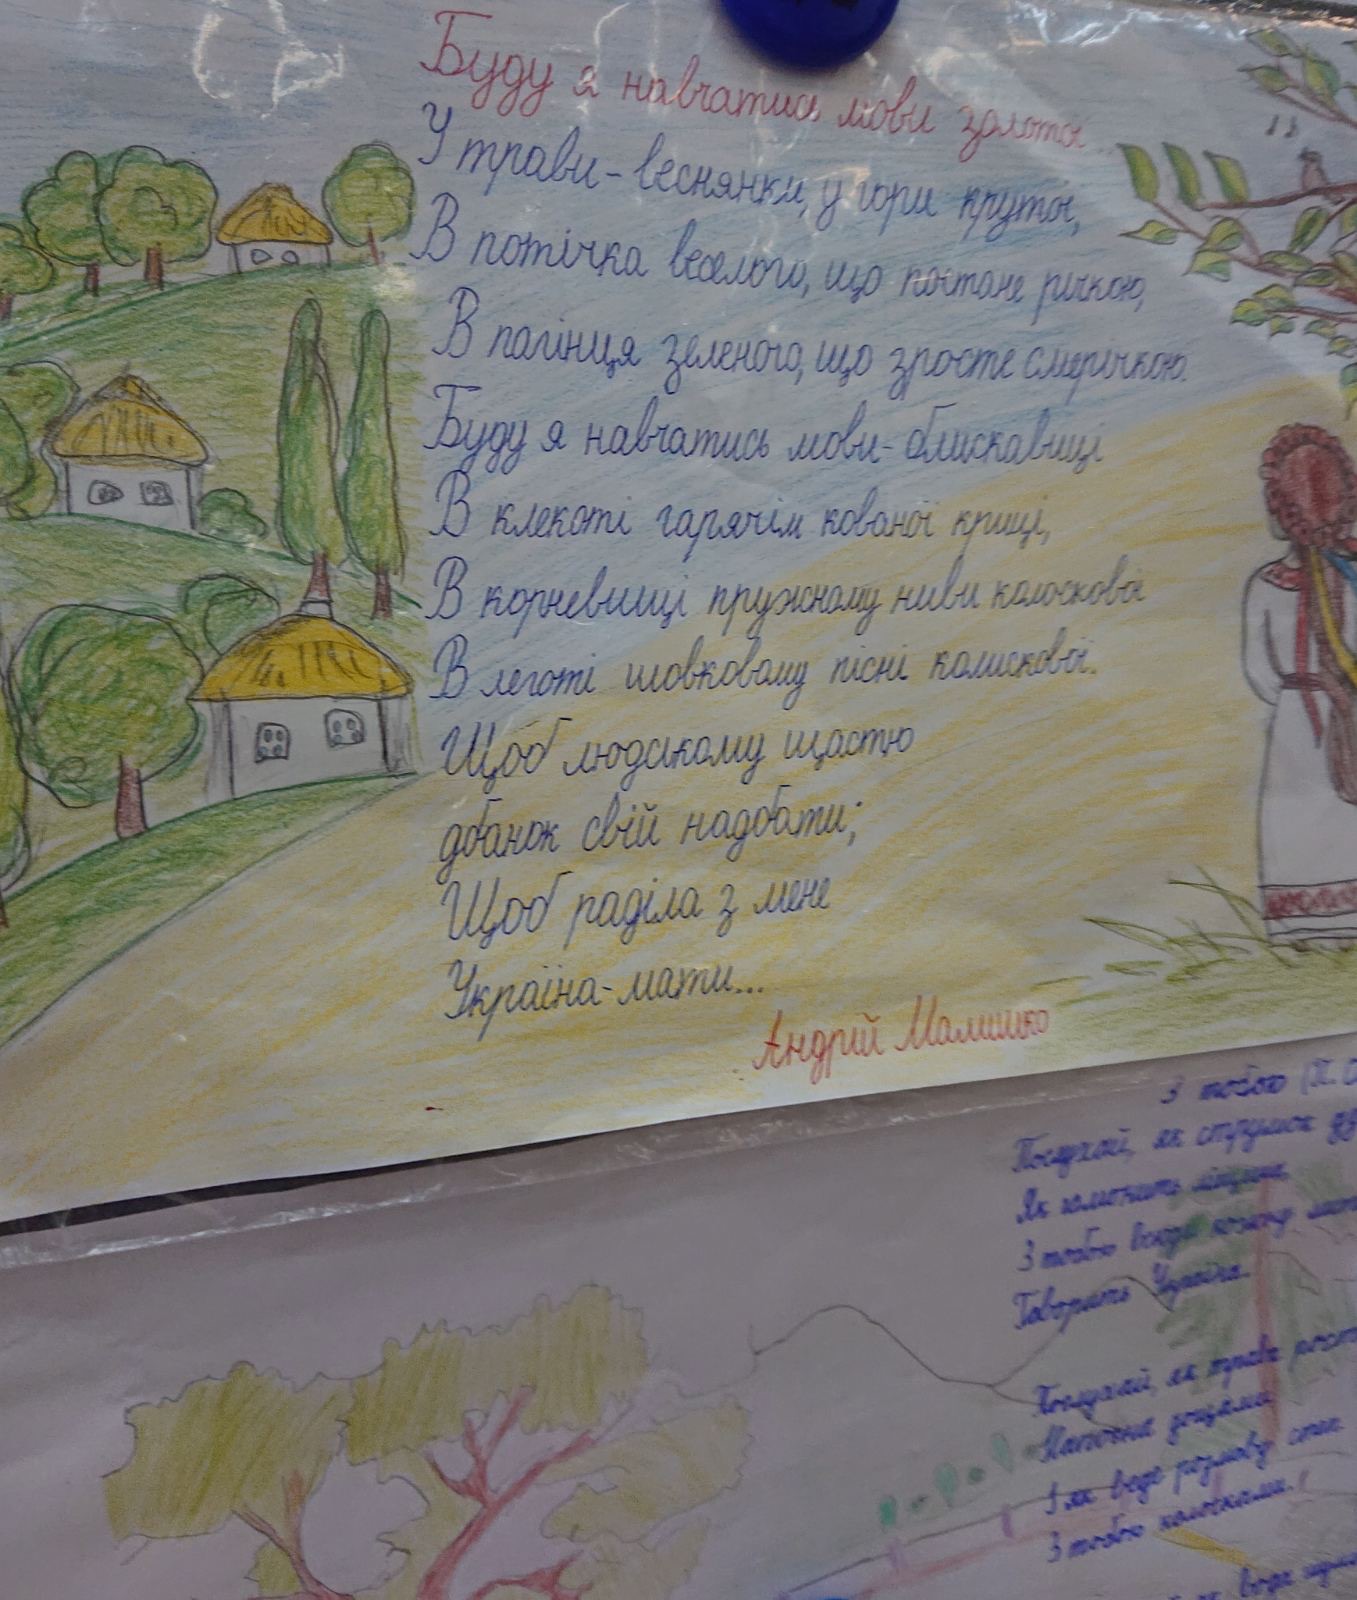 Буду я навчатись мови золотої
У трави-веснянки, у гори крутої,
В потічка веселого, що постане річкою,
В пагінця зеленого, що зросте смерічкою.
Буду я навчатись мови-блискавиці
В клекоті гарячім кованої криці,
В корневищі пружному ниви колоскової
В леготі шовковому пісні колискової.
Щоб людському щастю
дбанок свій надбати;
Щоб раділа з мене
Україна-мати...
Андрій Малишко
З тобою (П.
Послухай, як струмок
Як
З тобою всюди кожну
Говорить Україна.
Послухай, як трава росте
Напоєна дощами
І як веде розмову степ
З тобою колосками.
вода